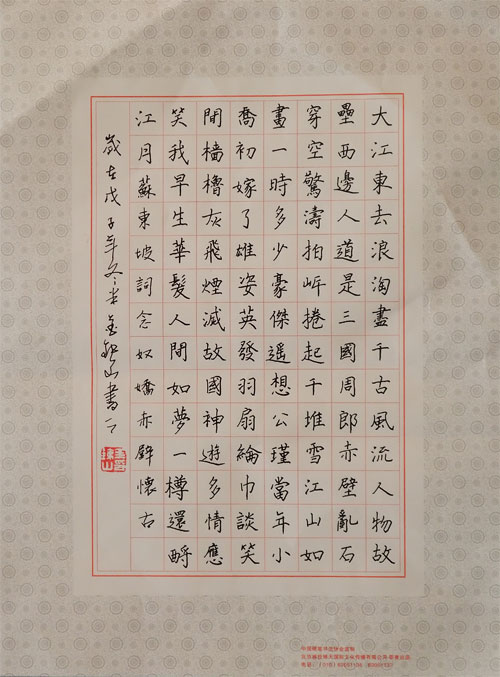 大江東去浪淘盡千古風流人物故
壘西邊人道是三國周郎赤壁亂石
穿空驚濤拍岸捲起千堆雪江山如
畫一時多少豪傑遥想公瑾當年小
喬初嫁了雄姿英發羽扇綸巾談笑
間檣櫓灰飛煙滅故國神遊多情應
笑我早生華髮人間如夢一樽還酹
江月蘇東坡詞念奴嬌赤壁懷古
歲在戊子年冬山書